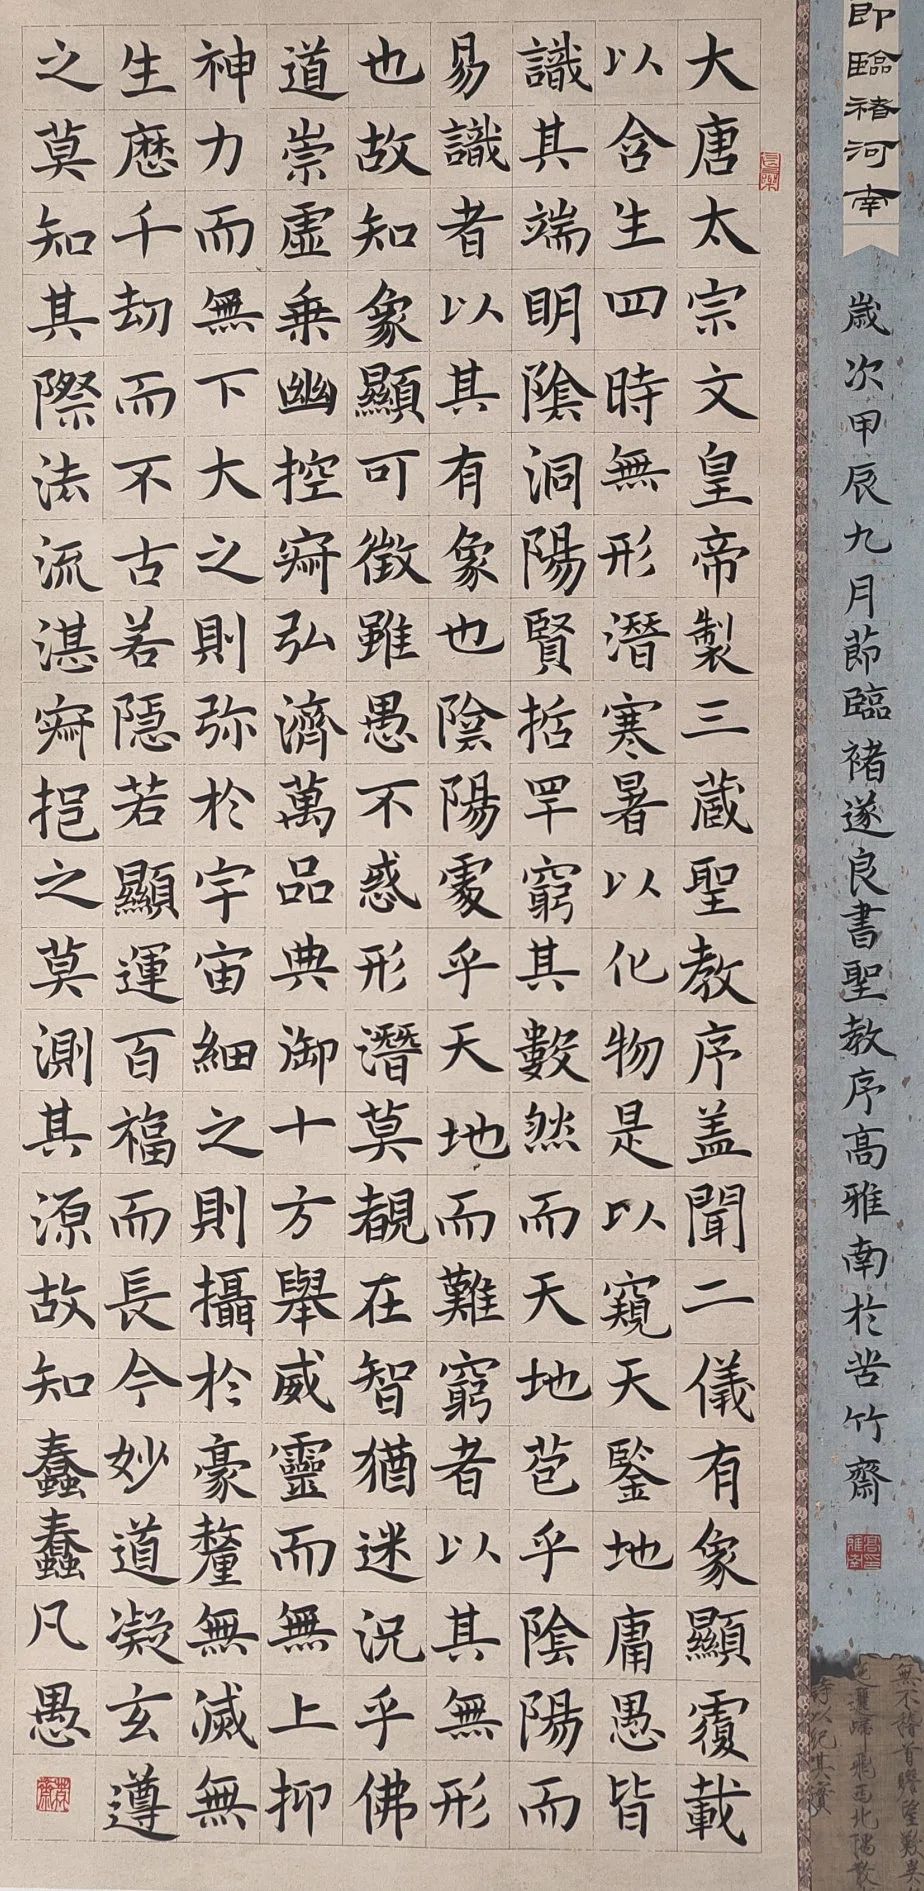 臨褚河南
歲次甲辰九月節臨褚遂良書聖教序高雅南於苦竹齋
大唐太宗文皇帝製三蔵聖教序盖聞二儀有象顯覆載
以含生四時無形潛寒暑以化物是以窺天鑒地庸愚皆
識其端明陰洞陽賢哲罕窮其數然而天地苞乎陰陽而
易識者以其有象也陰陽處乎天地而難窮者以其無形
也故知象顯可徵雖愚不惑形潛莫覩在智猶迷況乎佛
道崇虛乗幽控寂弘濟萬品典御十方舉威靈而無上抑
神力而無下大之則弥於宇宙細之則攝於豪釐無滅無
生歷千劫而不古若隱若顯運百福而長今妙道凝玄遵
之莫知其際法流湛寂挹之莫測其源故知蠢蠢凡愚